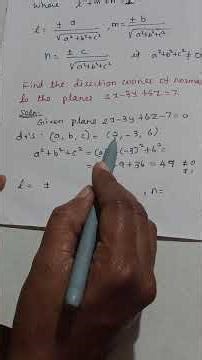 where l²+m²+n²=1
l = ± a / √a²+b²+c² , m = ± b / √a²+b²+c²
n = ± c / √a²+b²+c² if a²+b²+c² ≠ 0
Find the direction cosines of normal
to the planes 2x-3y+6z=7.
Soln:
Given plane 2x-3y+6z-7=0
d.r's: (a, b, c) = (2, -3, 6)
a²+b²+c² = (-3)²+6²=
9+36 = 49 ≠0
l = ± n=